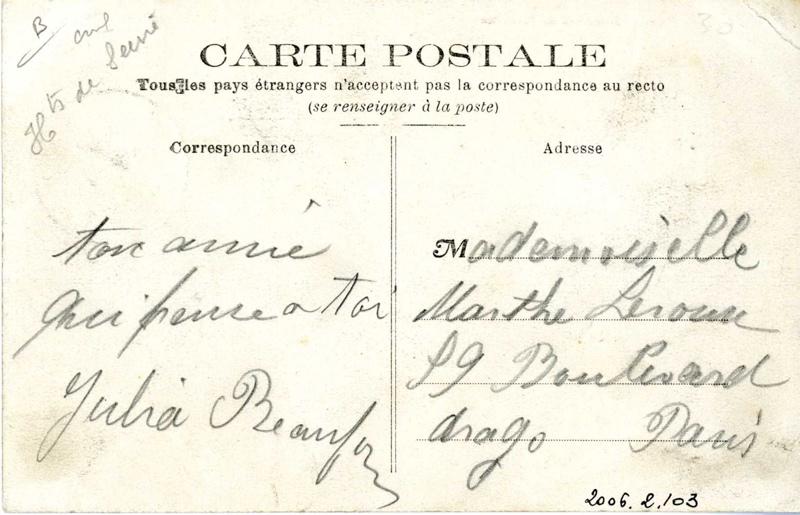 B
Hts de Seine
30
CARTE POSTALE
Tous les pays étrangers n'acceptent pas la correspondance au recto
(se renseigner à la poste)
Correspondance
ton amie
qui pense a toi
Julia Beaufor
Adresse
Mademoiselle
Marthe Leroux
59 Boulevard
drago Paris
2006.2.103